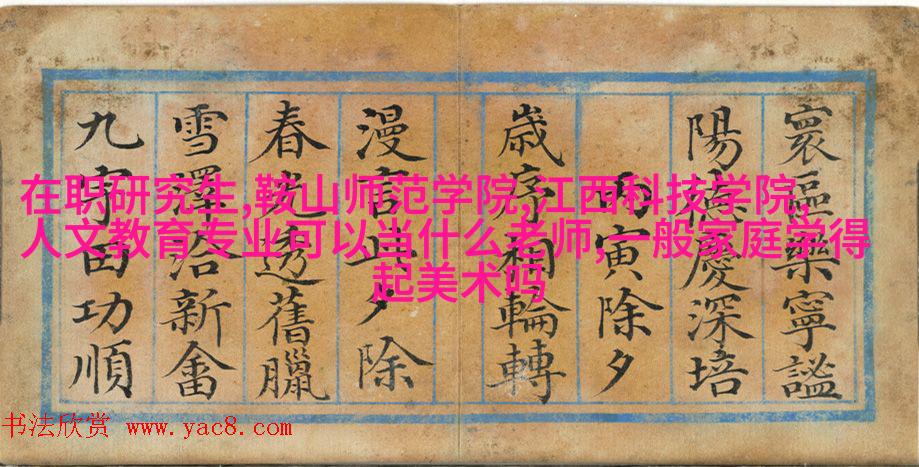 在职研究生,鞍山师范学院,江西科技学院,
人文教育专业可以当什么老师,一般家庭学得
起美术吗
寰區樂寧謐
陽德慶深培
丙寅除夕
歲序相輪轉
漫言此夕除
春光透舊臘
雪澤洽新畬
九宇田功順
书法欣赏 www.yac8.com